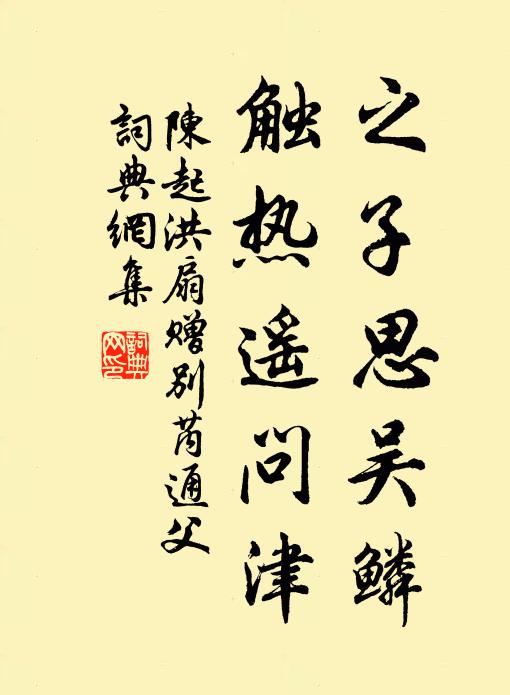 之子思吴鳞
触热遥问津
陳起洪扇赠别芮通父
詞典網集
詞典网印